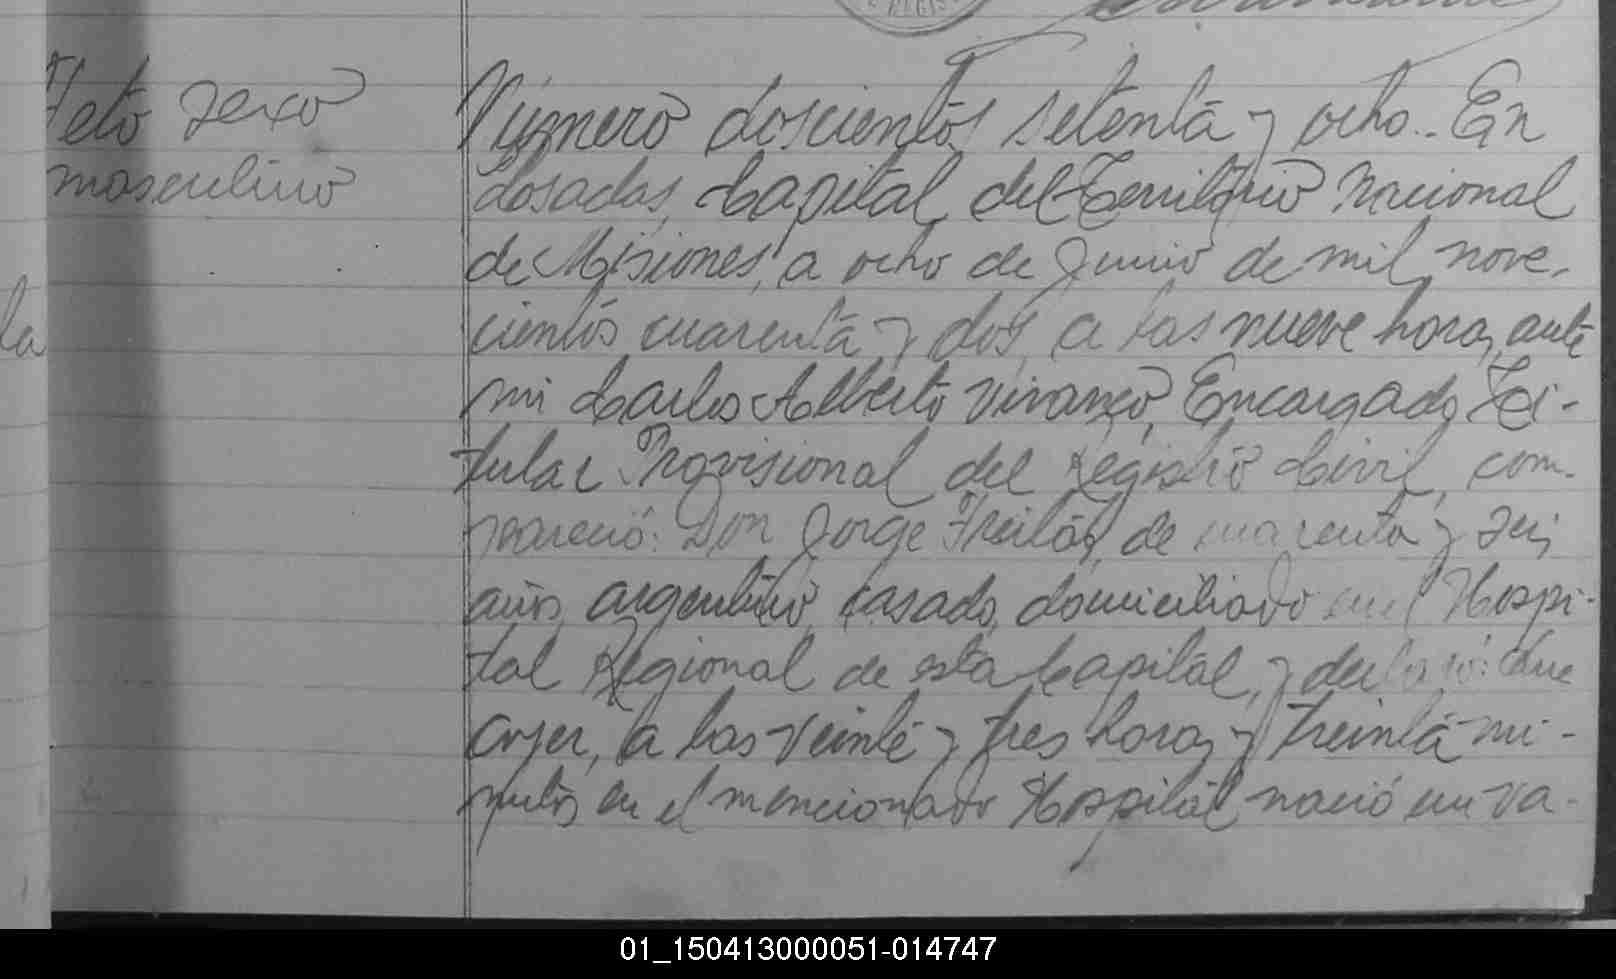 REGIS
Feto sexo
masculino
la
Número doscientos setenta y ocho.. En
Posadas, Capital del Territorio Nacional
de Misiones, a ocho de Junio de mil nove-
cientos cuarenta y dos, a las nueve horas, ante
mi Carlos Alberto Vivanco, Encargado Ti-
tular Provisional del Registro Civil, com-
pareció: Don Jorge Freitas, de cuarenta y seis
años, argentino, casado, domiciliado en el Hospi-
tal Regional de esta Capital, y declaró: Que
ayer, a las veinte y tres horas y treinta mi-
nutos en el mencionado Hospital nació un va-
01_150413000051-014747